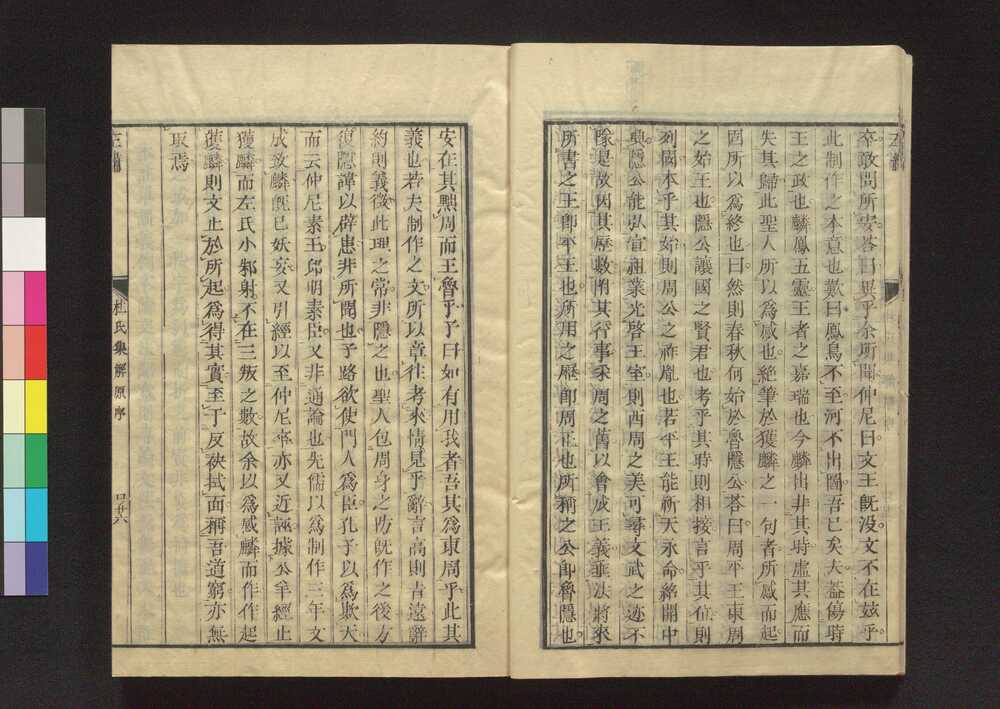 卒敢問所安荅曰異乎余所聞仲尼曰文王旣沒文不在玆乎
此制作之本意也歎曰鳳鳥不至河不出圖吾已矣夫蓋傷時
王之政也麟鳳五靈王者之嘉瑞也今麟出非其時虛其應而
失其歸此聖人所以爲感也絶筆於獲麟之一句者所感而起
固所以爲終也曰然則春秋何始於魯隱公荅曰周平王東周
之始王也隱公讓國之賢君也考乎其時則相接言乎其位則
列國本乎其始則周公之祚胤也若平王能祈天永命紹開中
興隱公能弘宣祖業光啓王室則西周之美可尋文武之迹不
隊是故因其歷數附其行事采周之舊以會成王義垂法將來
所書之王卽平王也所用之歷卽周正也所稱之公卽魯隱也
安在其黜周而王魯乎子曰如有用我者吾其爲東周乎此其
義也若夫制作之文所以章往考來情見乎辭言高則旨遠辭
約則義微此理之常非隱之也聖人包周身之防旣作之後方
復隱諱以辟患非所聞也子路欲使門人爲臣孔子以爲欺天
而云仲尼素王丘明素臣又非通論也先儒以爲制作三年文
成致麟旣已妖妄又引經以至仲尼卒亦又近誣據公羊經止
獲麟而左氏小邾射不在三叛之數故余以爲感麟而作作起
獲麟則文止於所起爲得其實至于反袂拭面稱吾道窮亦無
取焉
杜氏集解原序